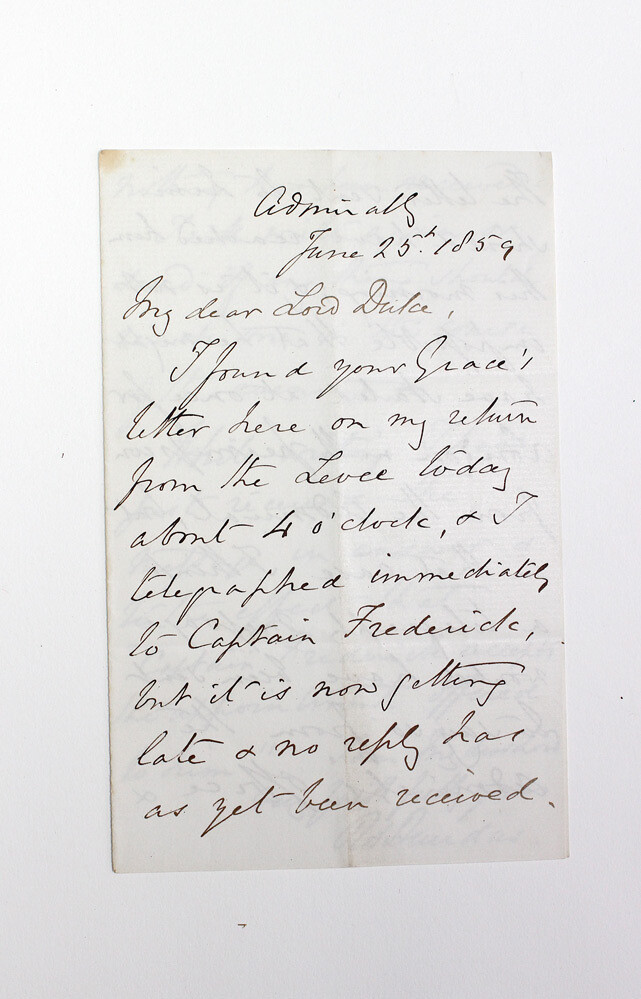 Admiralty
June 25th. 1859
My dear Lord Duke,
I found your Grace's
letter here on my return
from the Levee today
about 4 o'clock, & I
telegraphed immediately
to Captain Frederick,
but it is now getting
late & no reply has
as yet been received.